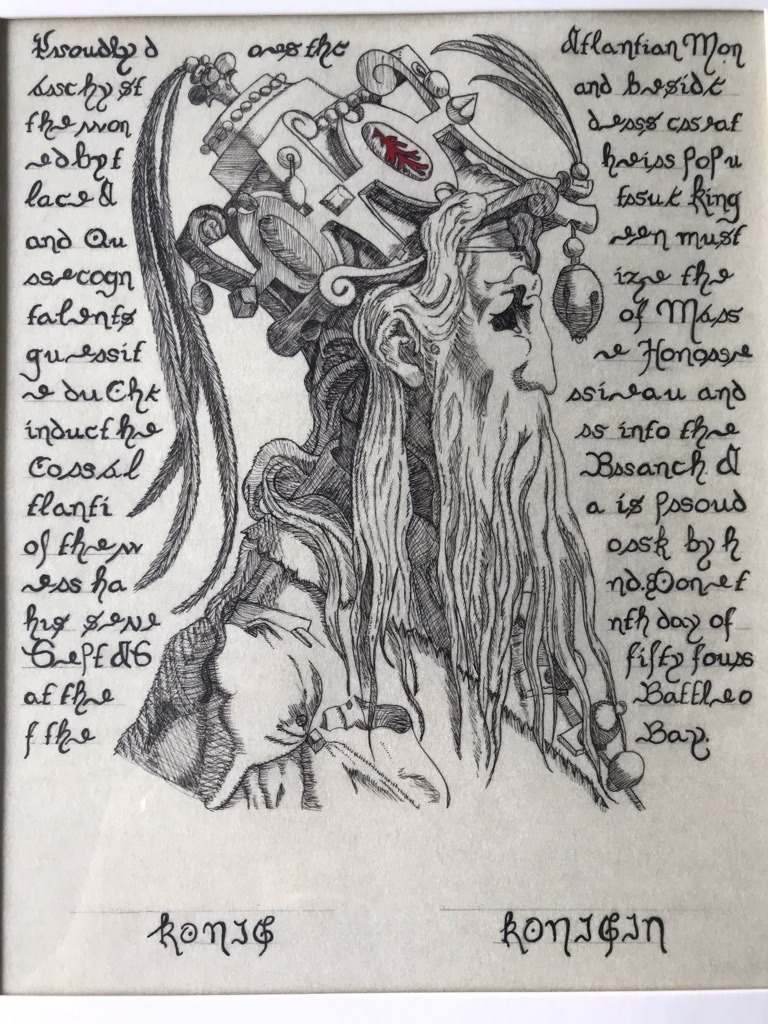 Proudly d oes the Atlantian Mon
archy st and beside
the won ders creat
ed by t heir popu
lace A true King
and Qu een must
recogn ize the
talents of Mar
guerit e Honore
e du Che riveau and
induct he r into the
Coral Branch A
tlanti a is proud
of the w ork by h
er ha nd. Done t
his seve nth day of
Sept AS fifty four
at the Battle o
f the Bay.
KONIG KONIGIN